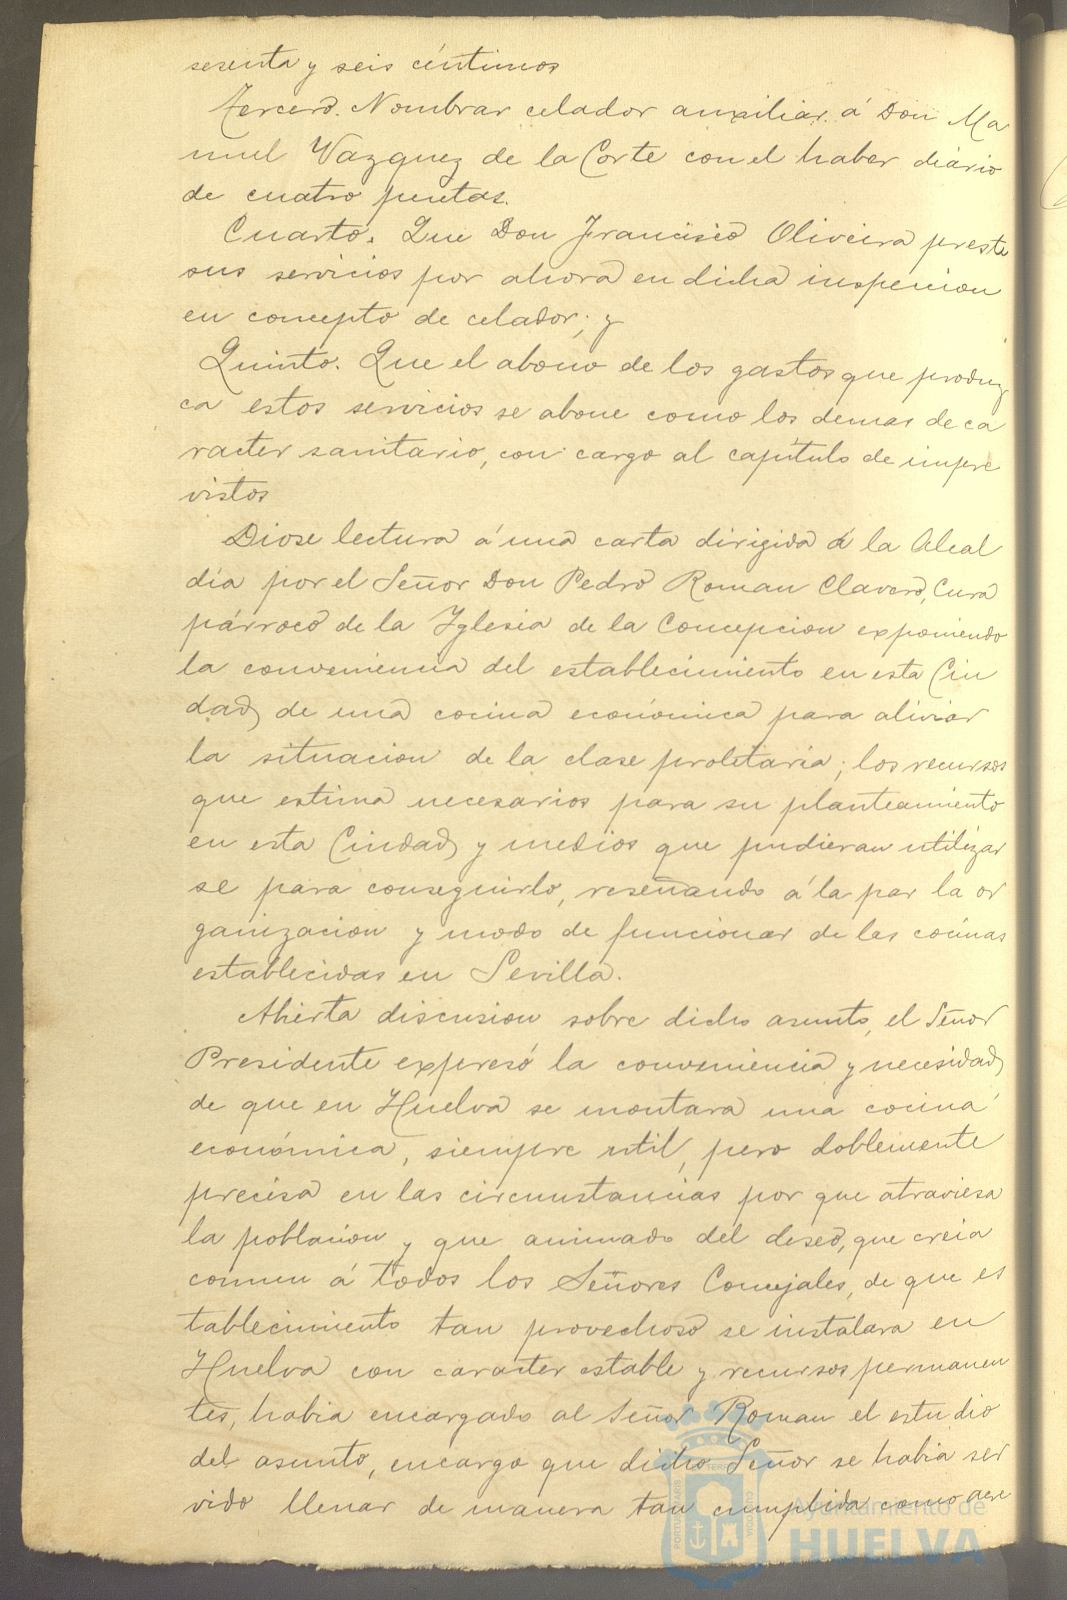 sesenta y seis céntimos
Tercero. Nombrar celador auxiliar á Don Ma
nuel Vazquez de la Corte con el haber diário
de cuatro pesetas.
Cuarto. Que Don Francisco Oliveira preste
sus servicios por ahora en dicha inspeccion
en concepto de celador; y
Quinto. Que el abono de los gastos que produz
ca estos servicios se abone como los demas de ca
racter sanitario, con cargo al capítulo de impre
vistos
Diose lectura á una carta dirigida á la Alcal
dia por el Señor Don Pedro Roman Clavero, Cura
párroco de la Iglesia de la Concepcion exponiendo
la conveniencia del establecimiento en esta Ciu
dad, de una cocina económica para aliviar
la situacion de la clase proletaria; los recursos
que estima necesarios para su planteamiento
en esta Ciudad, y medios que pudieran utilizar
se para conseguirlo, reseñando á la par la or
ganizacion y modo de funcionar de las cocinas
establecidas en Sevilla.
Abierta discusion sobre dicho asunto, el Señor
Presidente expresó la conveniencia y necesidad,
de que en Huelva se montara una cocina
económica, siempre util, pero doblemente
precisa en las circunstancias por que atraviesa
la poblacion y que animado del deseo, que creia
comun á todos los Señores Concejales, de que es
tablecimiento tan provechoso se instalara en
Huelva con caracter estable y recursos permanen
tes, habia encargado al Señor Roman el estudio
del asunto, encargo que dicho Señor se habia ser
vido llenar de manera tan cumplida como
Ayuntamiento de
HUELVA